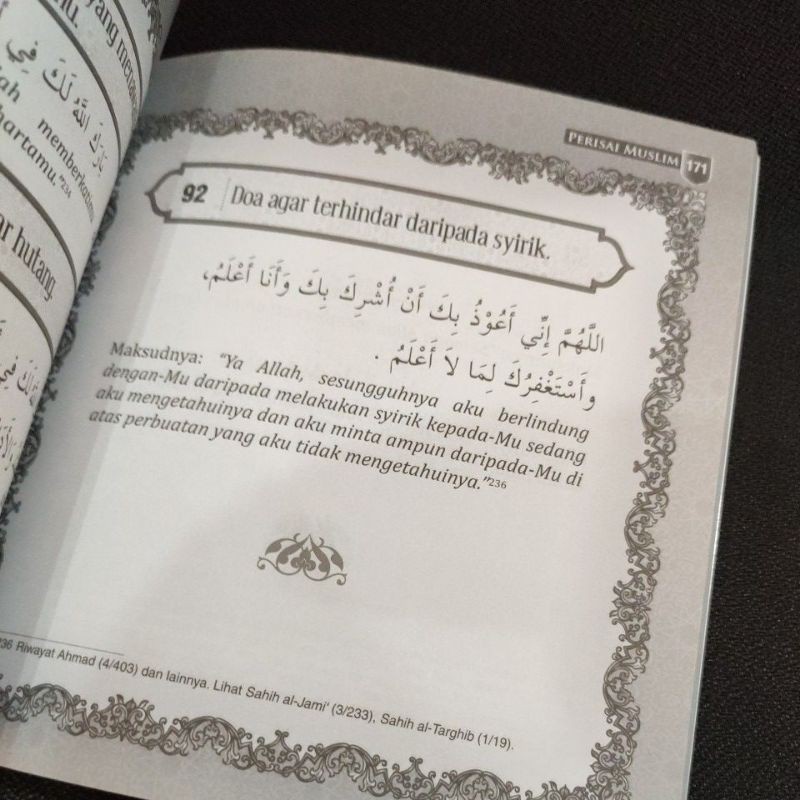 yang
mu.
بَارَكَ اللَّهُ لَكَ فِي
memberkatimu
hartamu."234
hutang.
PERISAI MUSLIM 171
92 Doa agar terhindar daripada syirik.
اللَّهُمَّ إِنِّي أَعُوْذُ بِكَ أَنْ أُشْرِكَ بِكَ وَأَنَا أَعْلَمُ،
وَأَسْتَغْفِرُكَ لِمَا لاَ أَعْلَمُ .
Maksudnya: "Ya Allah, sesungguhnya aku berlindung
dengan-Mu daripada melakukan syirik kepada-Mu sedang
aku mengetahuinya dan aku minta ampun daripada-Mu di
atas perbuatan yang aku tidak mengetahuinya."236
236 Riwayat Ahmad (4/403) dan lainnya. Lihat Sahih al-Jami' (3/233), Sahih al-Targhib (1/19).